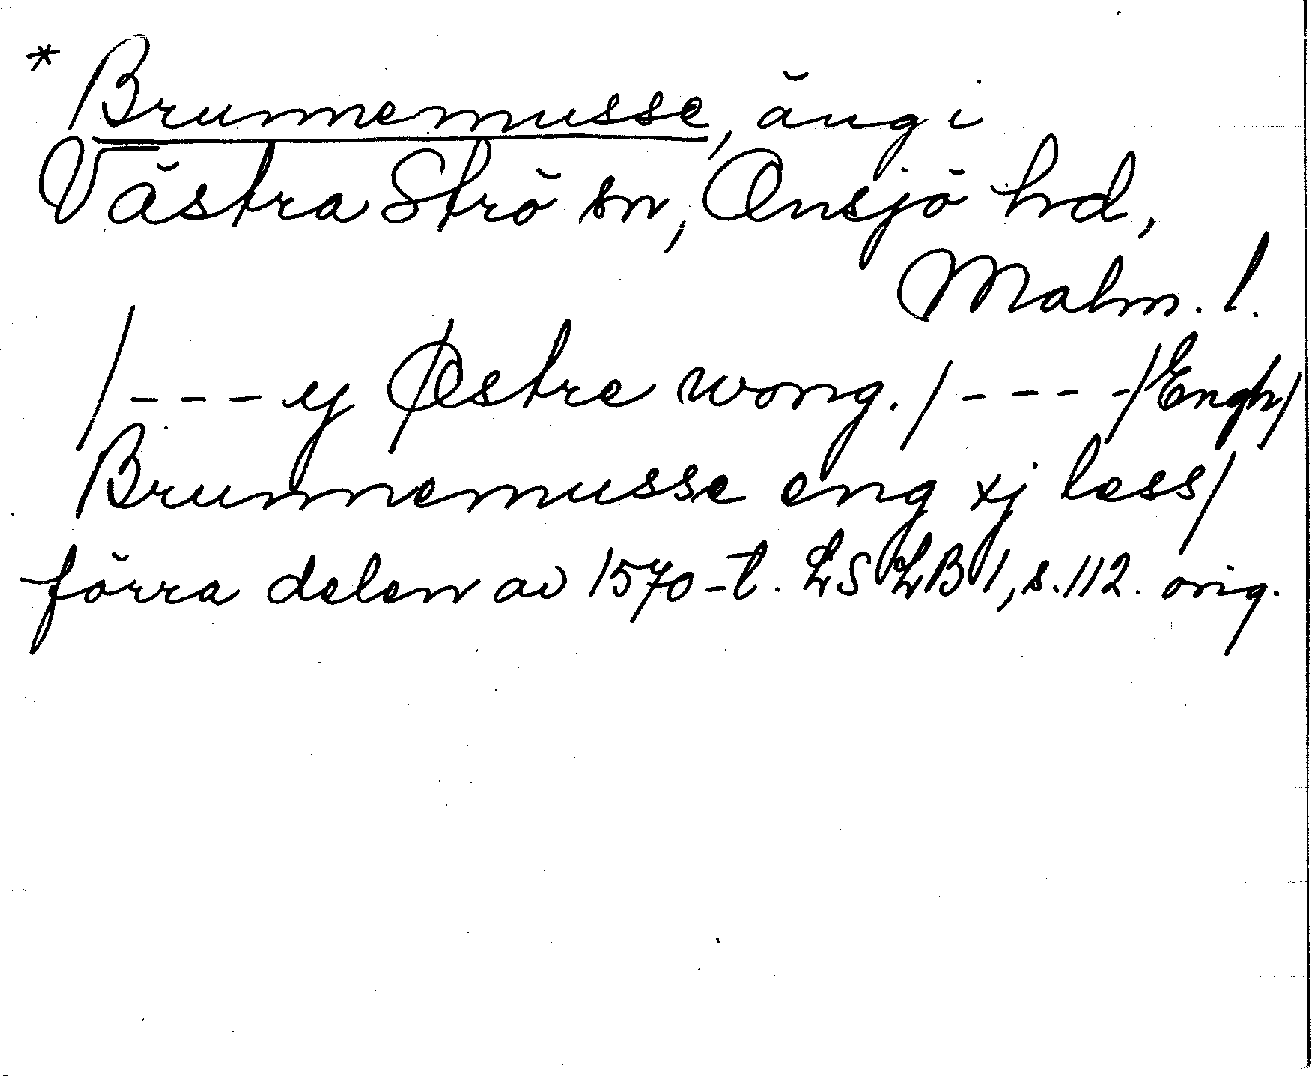 * Brunnemusse, äng i
Västra Strö sn, Onsjö hd,
Malm. l.
/---y Østre wong./----/Engh/
Brunnemusse eng xj less/
förra delen av 1570-t. LSLB 1, s.112. orig.